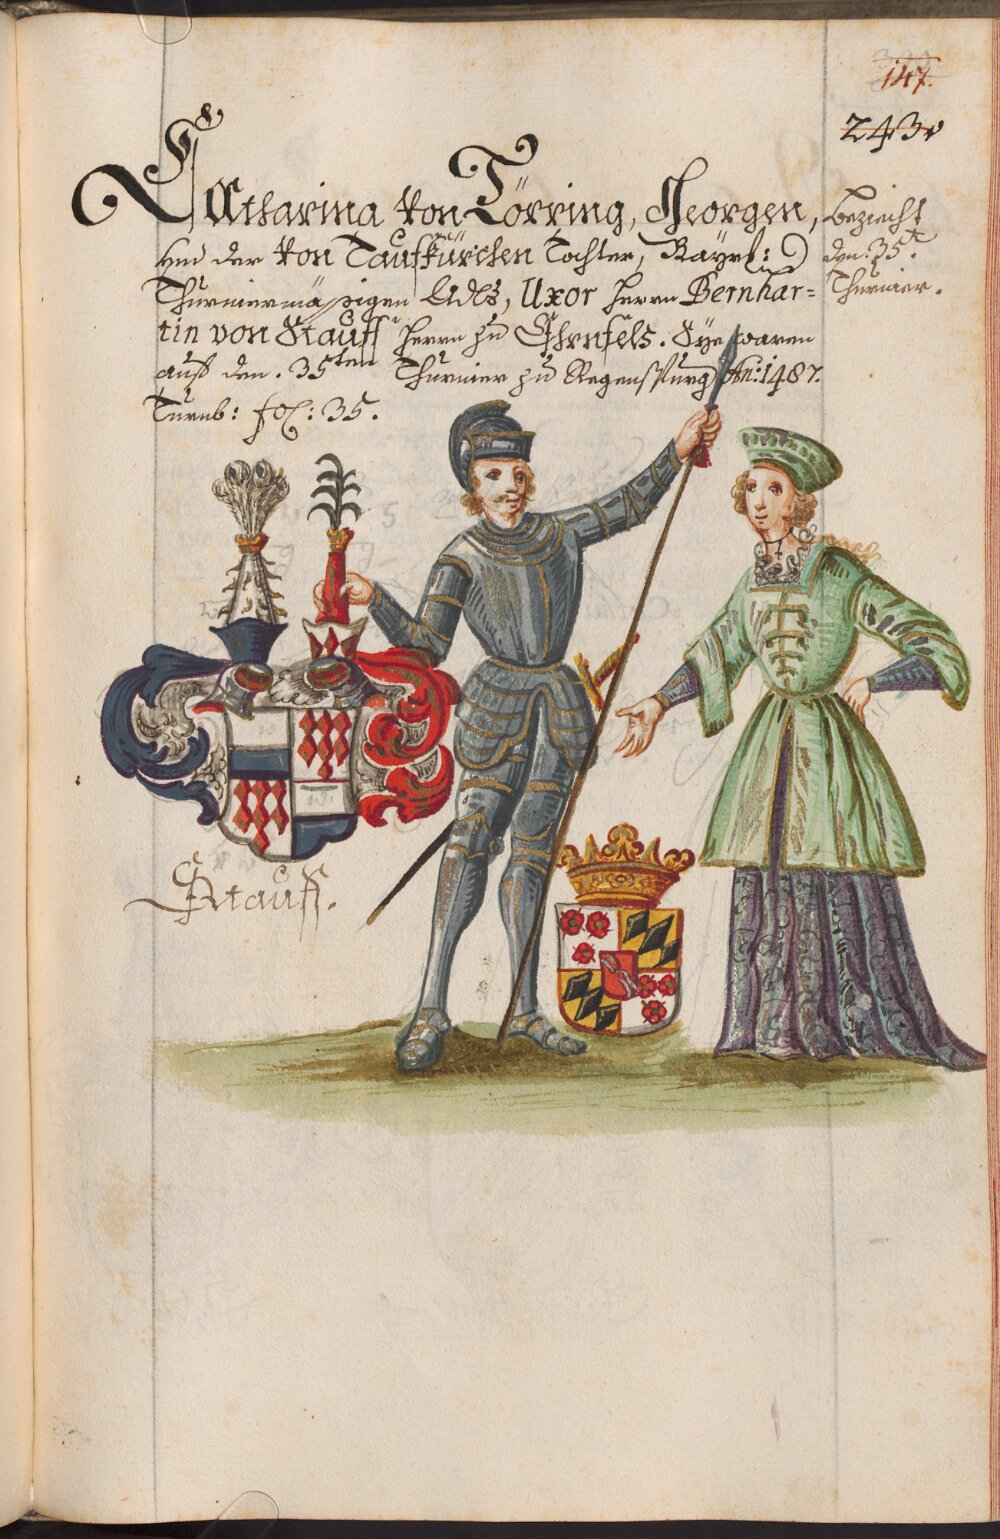 147.
243.
Catharina von Törring, Georgen,
und der von Taufkürchen Tochter, Bayrl:
Thurniermäßigen Adls, Uxor Herrn Bernhar=
tin von Stauff Herrn zu Ehrnfels. Sye waren
auf den. 35ten Thurnier zu Regenspurg Ao: 1487.
Turnb: fol: 35.
beziecht
den. 35t.
Thurnier.
Stauff.